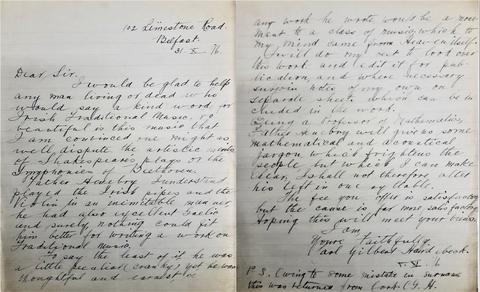 102 Limestone Road.
Belfast.
31 X 16
Dear Sir,
I would be glad to help
any man living or dead who
would say a kind word for
Irish Traditional Music. So
beautiful is this music that
I am convinced one might as
well dispute the artistic merits
of Shakespeare's plays or the
Symphonies of Beethoven.
Father Henebry I understand
played the Irish pipes and the
Violin in an inimitable manner,
he had also excellent Gaelic
and surely nothing could fit
him better for writing a work on
Traditional Music.
To say the least of it he was
a little peculiar (cranky) yet he was
thoughtful and earnest &
any work he wrote would be a monu-
ment to a class of music which to
my mind came from Heaven itself.
I will do my best to look over
his work and edit it for pub-
lication, and where necessary
subjoin notes of my own on
separate sheets which can be in-
cluded in the work.
Being a Professor of Mathematics
Father Henebry will give us some
mathematical and acoustical
jargon which frighten the
people but which I can make
clear, I shall not therefore alter
his text in one syllable.
The fee you offer is satisfactory
but the cause is far more satisfactory
Hoping this will meet your views
I am
Yours Faithfully,
Carl Gilbert Hardebeck.
X 16
P.S. Owing to some mistake in
this was returned from Cork. G. H.